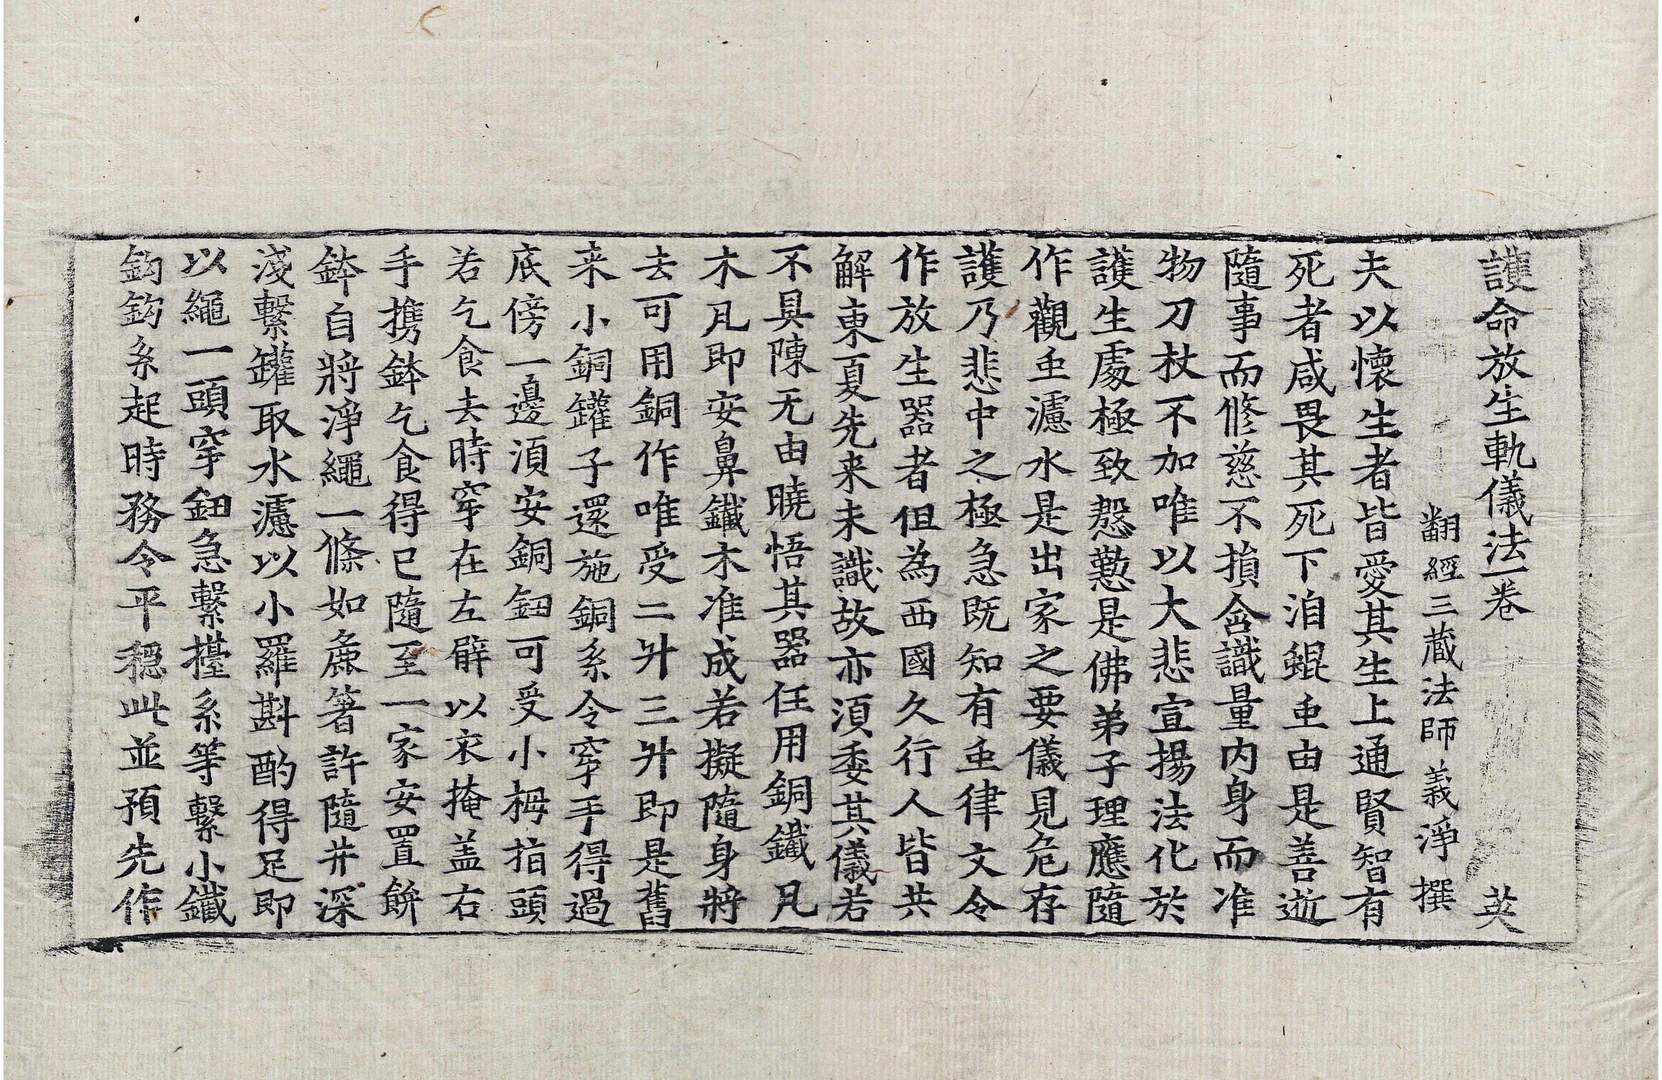 護命放生軌儀法一卷 英
翻經三藏法師義淨 撰
夫以懷生者皆愛其生上通賢智有
死者咸畏其死下洎蜫虫由是善逝
隨事而修慈不損含識量內身而准
物刀杖不加唯以大悲宣揚法化於
護生處極致慇懃是佛弟子理應隨
作觀虫濾水是出家之要儀見危存
護乃悲中之極急既知有虫律文令
作放生器者但為西國久行人皆共
解東夏先来未識故亦湏委其儀若
不具陳无由曉悟其器任用銅鐵凡
木凡即安鼻鐵木准成若擬隨身將
去可用銅作唯受二升三升即是舊
来小銅罐子還施銅系令穿手得過
底傍一邊湏安銅鈕可受小栂指頭
若乞食去時穿在左臂以衣掩盖右
手攜鉢乞食得已隨至一家安置餅
鉢自將淨繩一條如麁箸許隨井深
淺繫罐取水濾以小羅斟酌得足即
以繩一頭穿鈕急繫擡系等繫小鐵
鈎鈎系起時務令平穩此並預先作